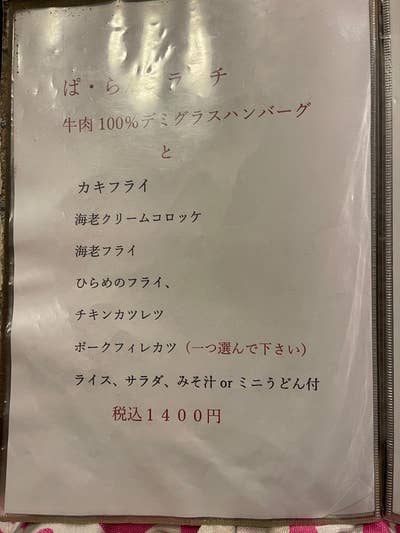 ぱ・ら ランチ
牛肉100%デミグラスハンバーグ
と
カキフライ
海老クリームコロッケ
海老フライ
ひらめのフライ、
チキンカツレツ
ポークフィレカツ（一つ選んで下さい）
ライス、サラダ、みそ汁 or ミニうどん付
税込１４００円